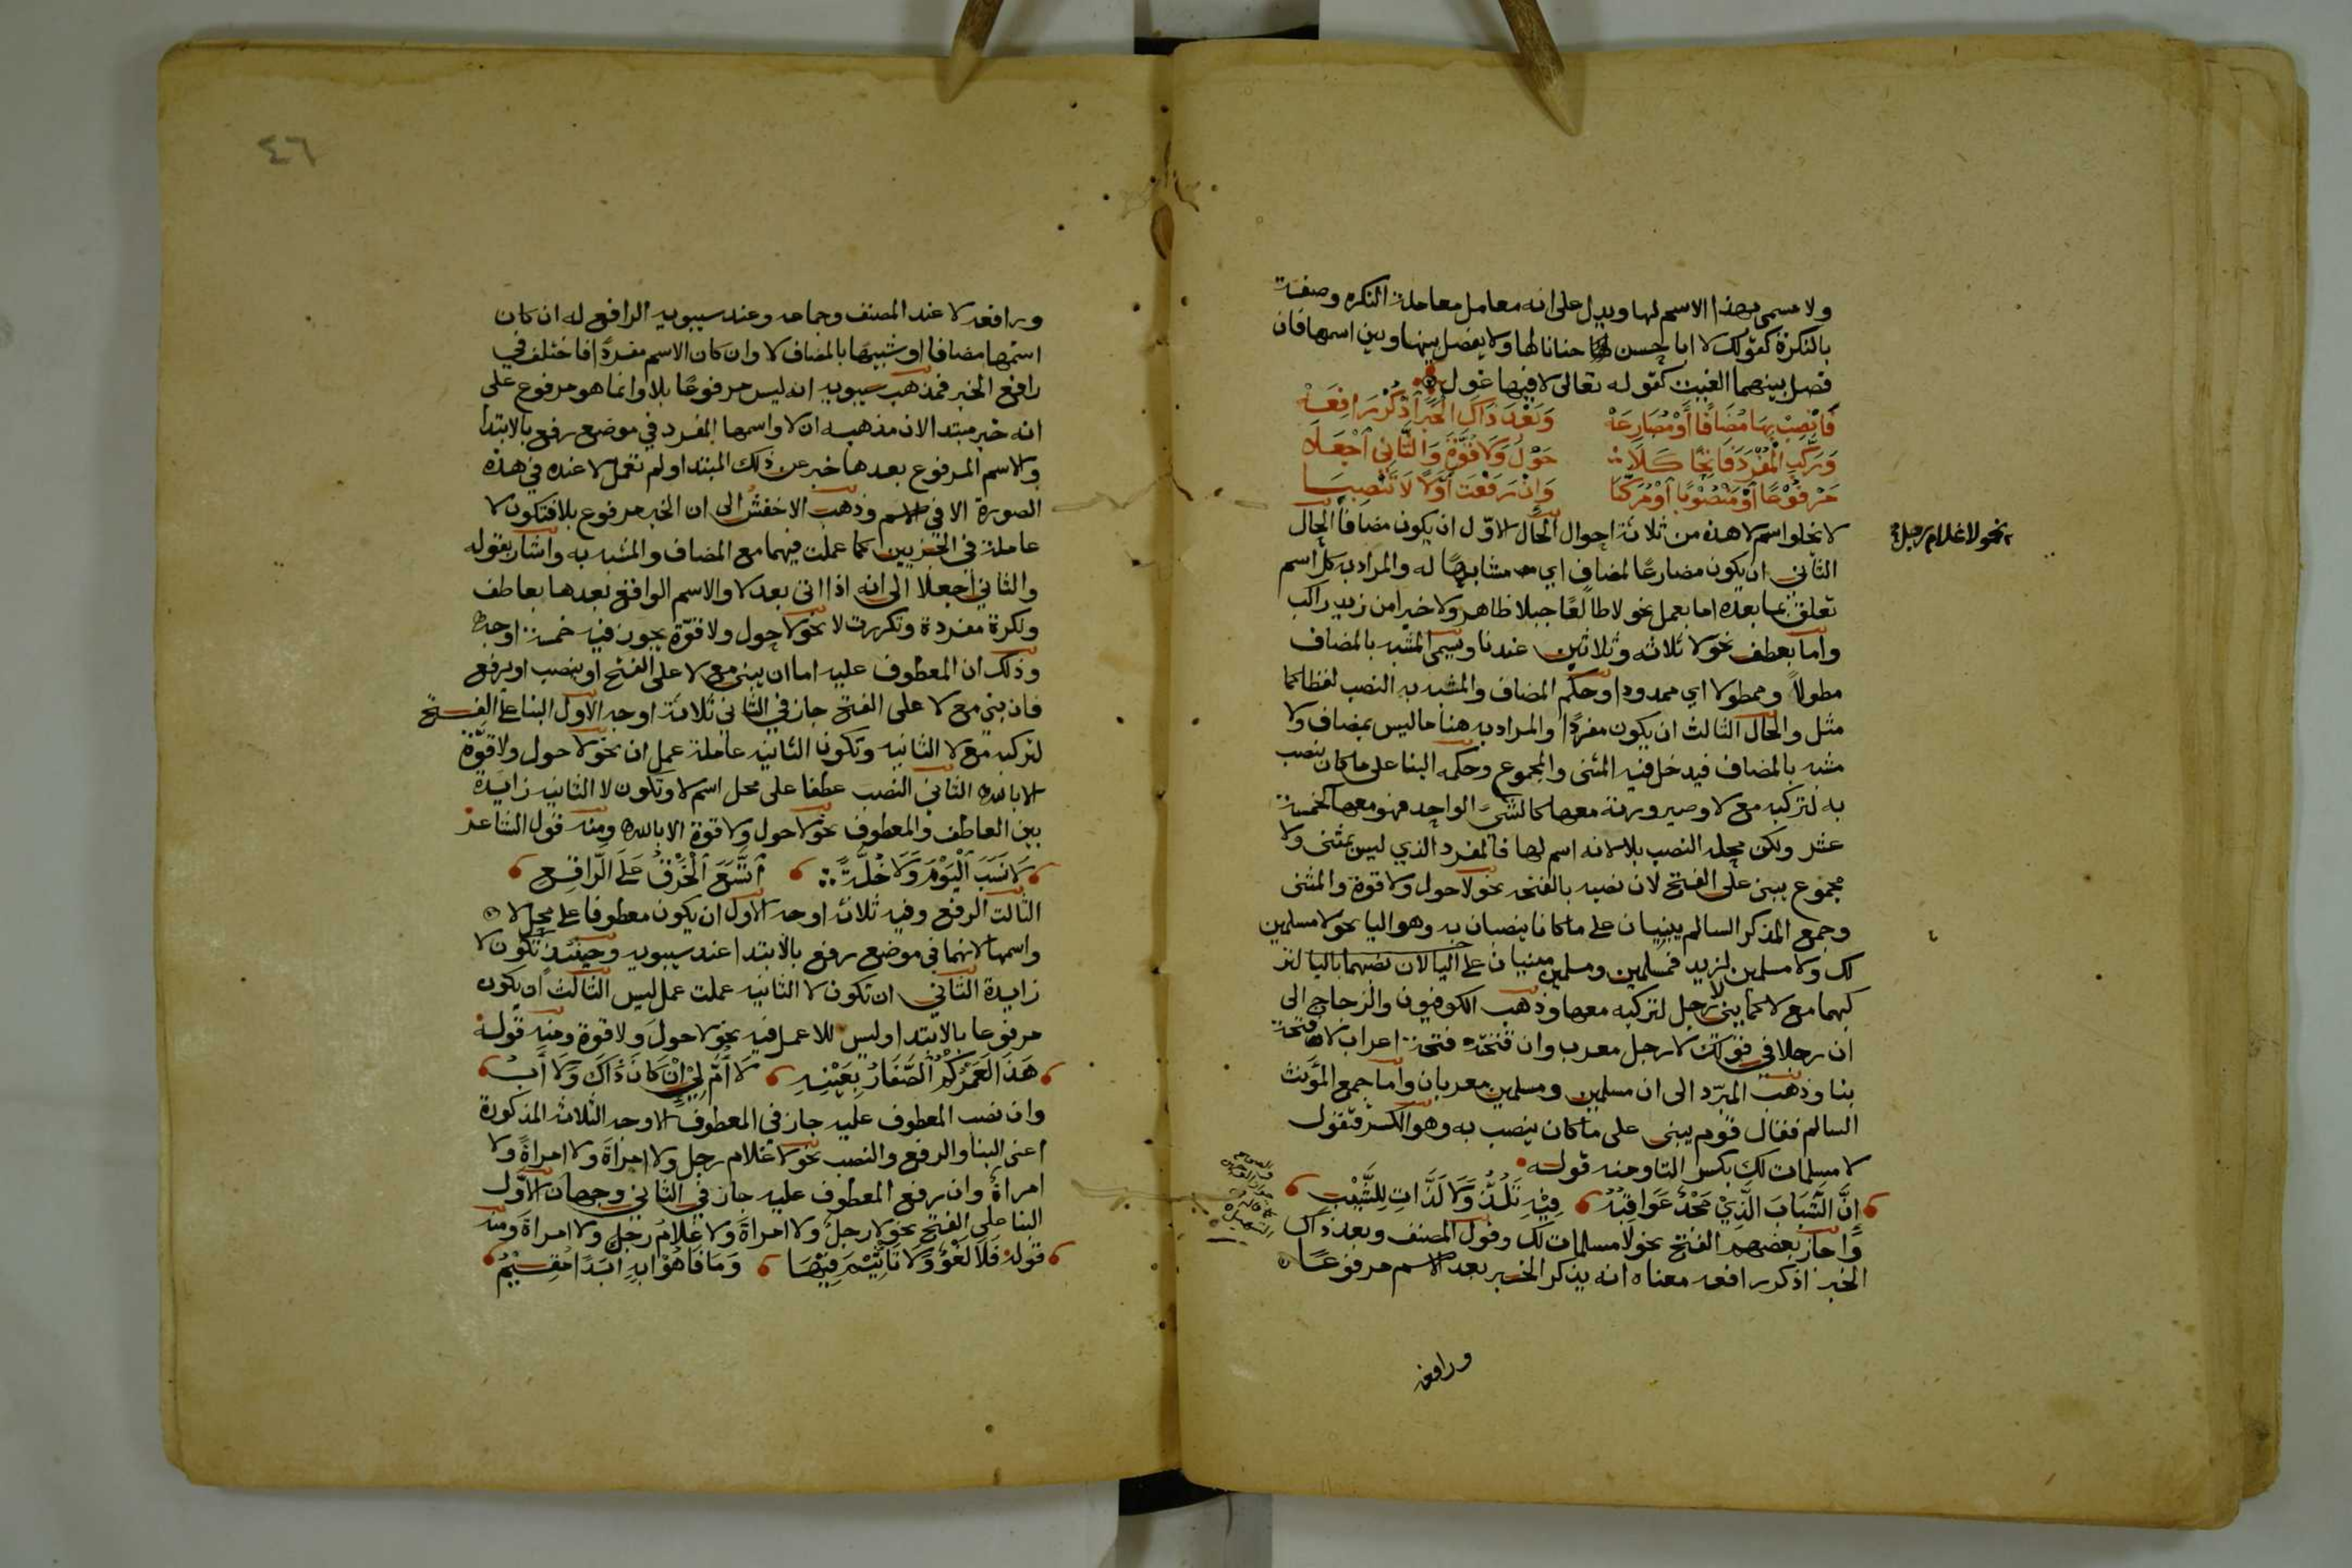 ولا مسمى بهذا الاسم لها ويدل على انه معامل معاملة النكره وصفته
بالنكرة كقولك لا ابا حسن حنانا لها ولا يفصل بينها وبين اسمها فان
فصل بينهما الغيت كقوله تعالى لا فيها غول
فَانْصِبْ بِهَا مُضَافًا أَوْ مُضَارِعَهْ وَبَعْدَ ذَاكَ الْخَبَرَ اذْكُرْ رَافِعَهْ
وَرَكِّبِ الْمُفْرَدَ فَاتِحًا كَلَا حَوْلَ وَلَا قُوَّةَ وَالثَّانِي اجْعَلَا
مَرْفُوْعًا أَوْ مَنْصُوْبًا أَوْ مُرَكَّبَا وَإِنْ رَفَعْتَ أَوَّلًا لَا تَنْصِبَا
لا يخلوا اسم لا هذه من ثلاثة احوال الحال الاوّل ان يكون مضافا الحال
نحو لا غلام رجل
الثاني ان يكون مضارعًا لمضاف اي مشابهًا له والمراد به كل اسم
تعلق بما بعده اما بعمل نحو لا طالعًا جبلا ظاهر ولا خيرا من زيد راكب
واما بعطف نحو لا ثلاثه وثلاثين عندنا ويسمى المشبه بالمضاف
مطولاً وممطولا اي ممدودا وحكم المضاف والمشبه به النصب لفظا كما
مثل والحال الثالث ان يكون مفردًا والمراد به هنا ما ليس بمضاف ولا
مشبه بالمضاف فيدخل فيه المثنى والمجموع وحكمه البنا على ما كان ينصب
به لتركبه مع لا وصيرورته معها كالشئ الواحد فهو معها كخمسة
عشر ولكن محله النصب بلا لانه اسم لها فالمفرد الذي ليس بمثنى ولا
مجموع يبنى على الفتح لان نصبه بالفتحه نحو لا حول ولا قوة والمثنى
وجمع المذكر السالم يبنيان على ما كانا ينصبان به وهو اليا نحو لا مسلمين
لك ولا مسلمين لزيد فمسلمين ومسلمين مبنيان على اليا لان نصبهما باليا لتر
كبهما مع لا كما بني رجل لتركبه معها وذهب الكوفيون والزجاج الى
ان رجلا في قولك لا رجل معرب وان فتحته فتحة اعراب لا فتحة
بنا وذهب المبرّد الى ان مسلمين ومسلمين معربان واما جمع المؤنث
السالم فقال قوم يبنى على ما كان ينصب به وهو الكسر فتقول
لا مسلمات لك بكسر التا ومنه قوله
إِنَّ الشَّبَابَ الَّذِيْ مَجْدٌ عَوَاقِبُهُ فِيْهِ نَلَذُّ وَلَا لَذَّاتِ لِلشَّيْبِ
واجاز بعضهم الفتح نحو لا مسلمات لك وقول المصنف وبعد ذاك
الخبر اذكر رافعه معناه انه يذكر الخبر بعد الاسم مرفوعًا
ورافعه
٤٦
ورافعه لا عند المصنف وجماعه وعند سيبويه الرافع له ان كان
اسمها مضافا او شبيهًا بالمضاف لا وان كان الاسم مفردًا فاختلف في
رافع الخبر فمذهب سيبويه انه ليس مرفوعًا بلا وانما هو مرفوع على
انه خبر مبتدا لان مذهبه ان لا واسمها المفرد في موضع رفع بالابتدا
والاسم المرفوع بعدها خبر عن ذلك المبتدا ولم تعمل لا عنده في هذه
الصورة الا في الاسم وذهب الاخفش الى ان الخبر مرفوع بلا فتكون لا
عاملة في الجزيين كما عملت فيهما مع المضاف والمشبه به واشار بقوله
والثاني اجعلا الى انه اذا اتى بعد لا والاسم الواقع بعدها بعاطف
ونكرة مفردة وتكررت لا نحو لا حول ولا قوّة يجوز فيه خمسة اوجه
وذلك ان المعطوف عليه اما ان يبنى مع لا على الفتح او ينصب او يرفع
فان بني مع لا على الفتح جاز في الثاني ثلاثة اوجه الاول البنا على الفتح
لتركبه مع لا الثانيه وتكون الثانيه عاملة عمل ان نحو لا حول ولا قوّة
الا بالله الثاني النصب عطفا على محل اسم لا وتكون لا الثانيه زايدة
بين العاطف والمعطوف نحو لا حول ولا قوة الا بالله ومنه قول الشاعر
لَا نَسَبَ الْيَوْمَ وَلَا خُلَّةً اتَّسَعَ الْخَرْقُ عَلَى الرَّاقِعِ
الثالث الرفع وفيه ثلاثة اوجه الاول ان يكون معطوفا على محل لا
واسمها لانهما في موضع رفع بالابتدا عند سيبويه وحينئذ تكون لا
زايدة الثاني ان تكون لا الثانيه عملت عمل ليس الثالث ان يكون
مرفوعا بالابتدا وليس للا عمل فيه نحو لا حول ولا قوة ومنه قوله
هَذَا لَعَمْرُكُمُ الصَّغَارُ بِعَيْنِهِ لَا أُمَّ لِيْ إِنْ كَانَ ذَاكَ وَلَا أَبُ
وان نصب المعطوف عليه جاز في المعطوف الاوجه الثلاثة المذكورة
اعنى البنا والرفع والنصب نحو لا غلام رجل ولا امراةَ ولا امراةً ولا
امراةٌ وان رفع المعطوف عليه جاز في الثاني وجهان الاوّل
البنا على الفتح نحو لا رجلٌ ولا امراةَ ولا غلامُ رجلٍ ولا امراةَ ومنه
قوله فَلَا لَغْوٌ وَلَا تَأْثِيْمَ فِيْهَا وَمَا فَاهُوْا بِهِ أَبَدًا مُقِيْمُ